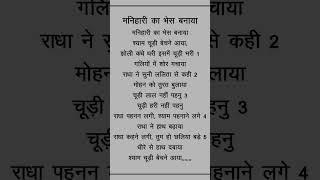 मनिहारी का भेस बनाया
मनिहारी का भेस बनाया
श्याम चूड़ी बेचने आया,
झोली कंधे धरी इसमें चूड़ी भरी 1
गलियों में शोर मचाया
राधा ने सुनी ललिता से कही 2
मोहन को तुरत बुलाया
चूड़ी लाल नहीं पहनु 3
चूड़ी हरी नहीं पहनु
राधा पहनन लगी, श्याम पहनाने लगे 4
राधा ने हाथ बढ़ाया
राधा कहने लगी, तुम हो छलिया बड़े 5
धीरे से हाथ दबाया
श्याम चूड़ी बेचने आया,,,,,